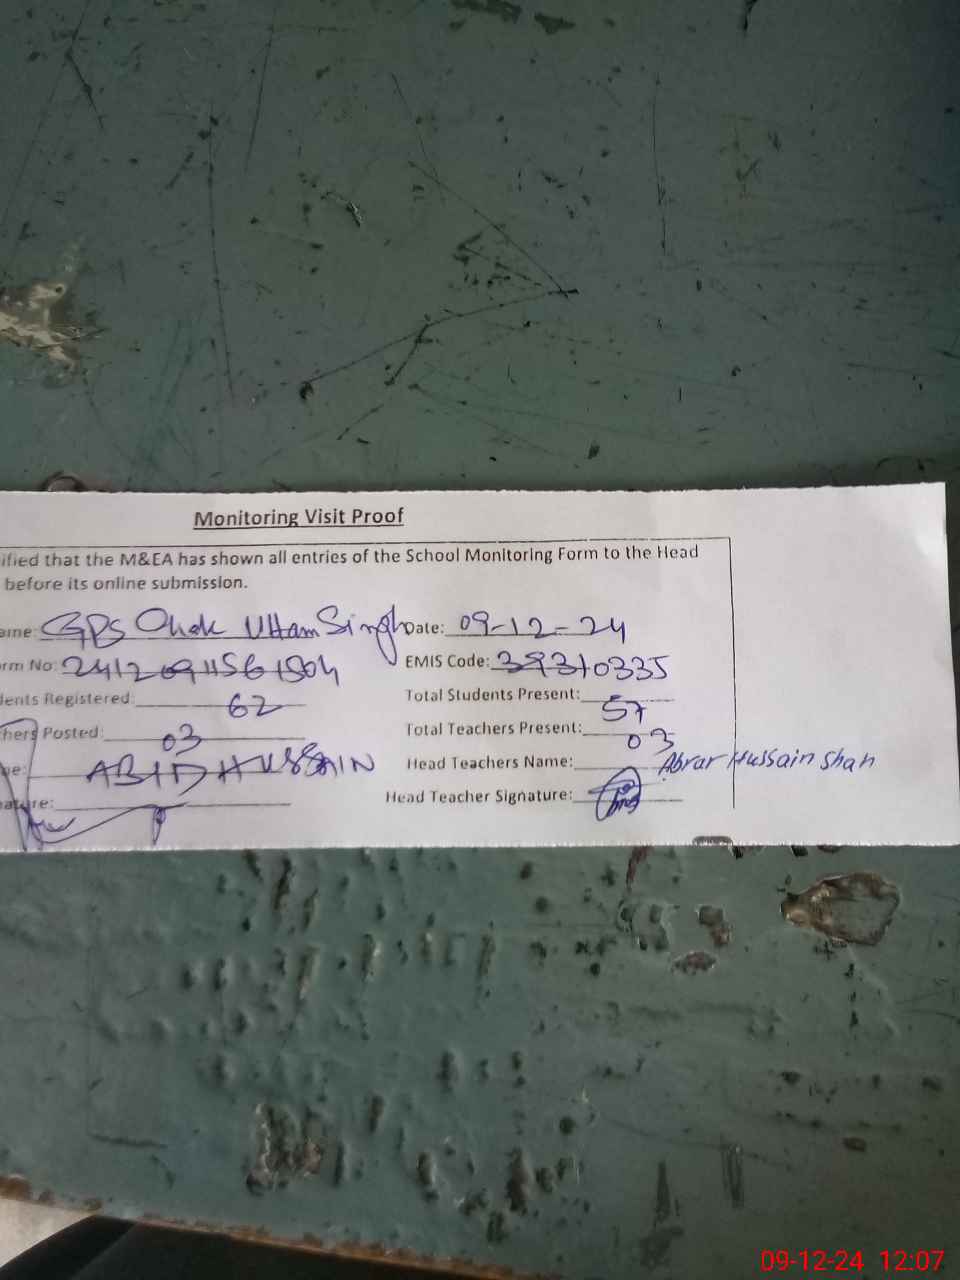 Monitoring Visit Proof
ified that the M&EA has shown all entries of the School Monitoring Form to the Head
before its online submission.
ame: GPS Chak Uttam Singh Date: 09-12-24
rm No: EMIS Code: 39310335
dents Registered: 62 Total Students Present: 57
hers Posted: 03 Total Teachers Present: 03
me: ABID HUSSAIN Head Teachers Name: Abrar Hussain Shah
nature: Head Teacher Signature:
09-12-24 12:07